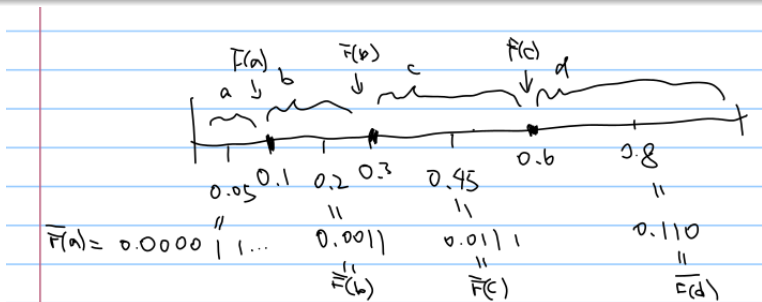 F(a) F(b) F(c)
a b c d
0.05 0.1 0.2 0.3 0.45 0.6 0.8
= = = =
F̅(a) = 0.0000 1 1... 0.0011 0.0111 0.110
= = =
F̅(b) F̅(c) F̅(d)